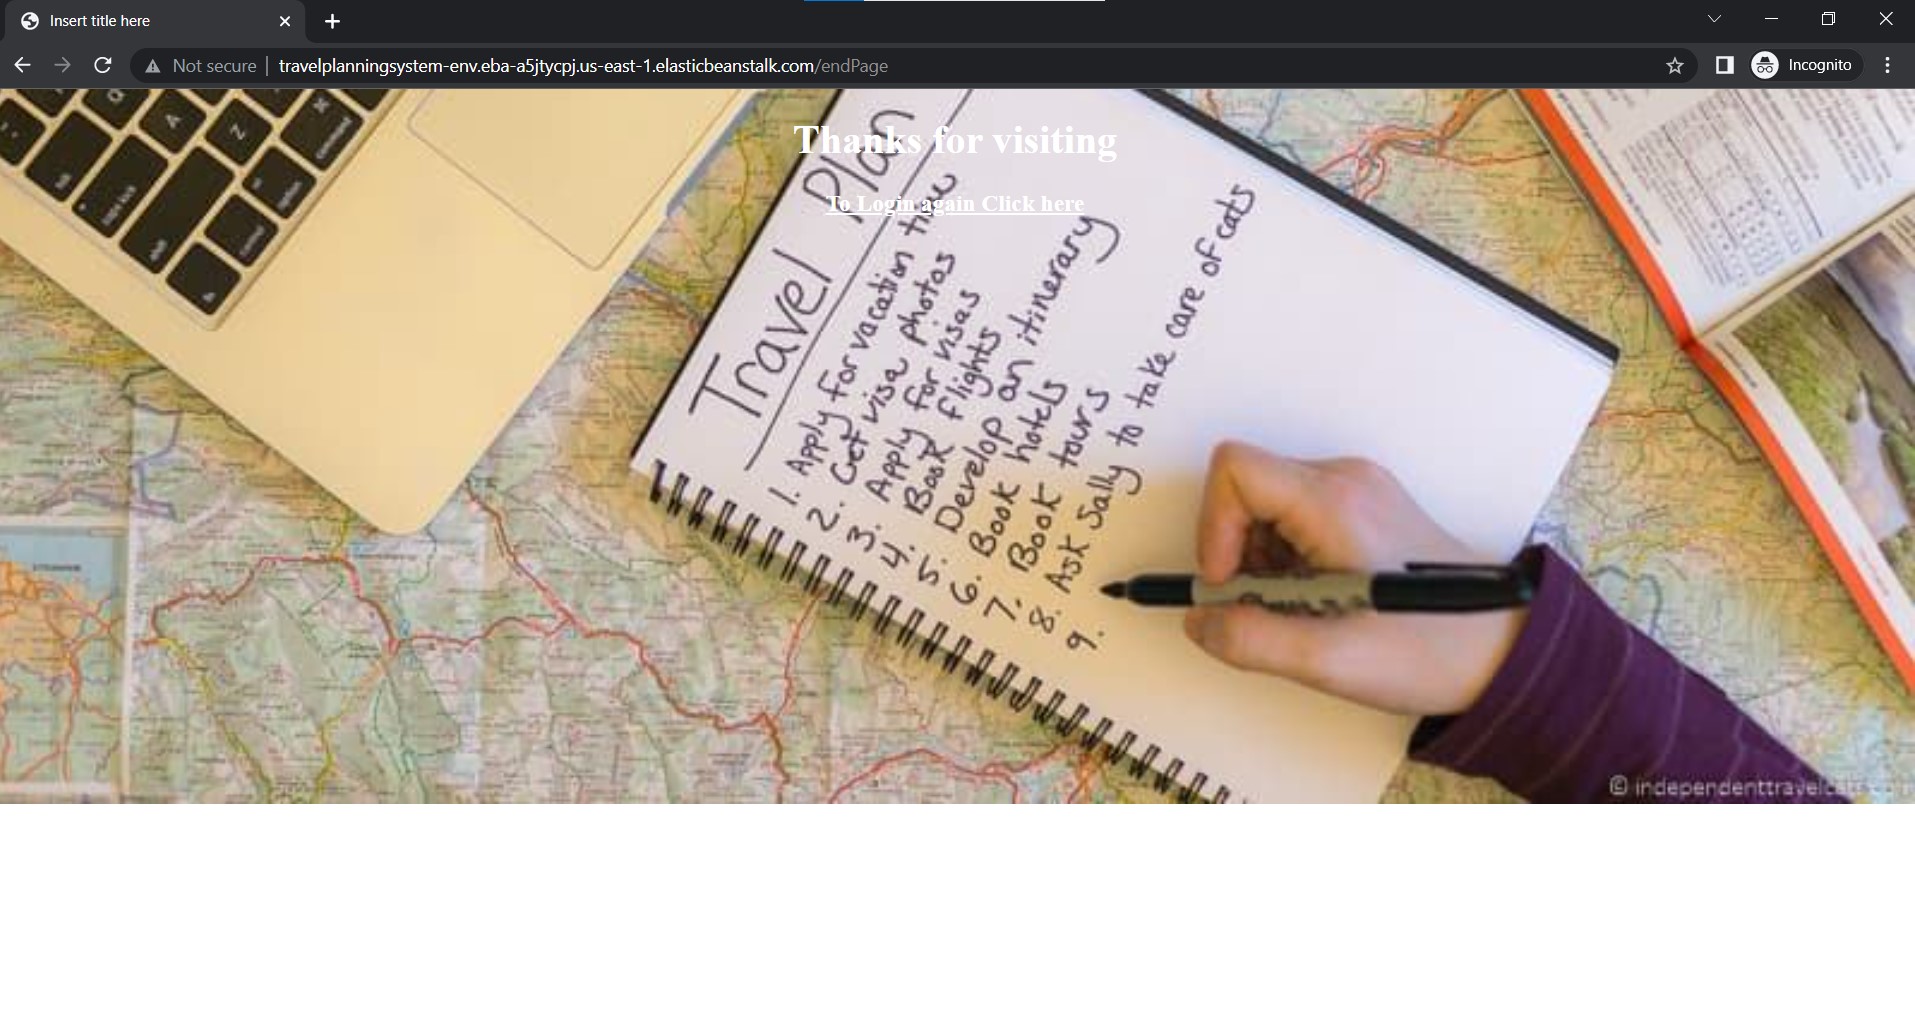 Insert title here
Not secure
travelplanningsystem-env.eba-a5jtycpj.us-east-1.elasticbeanstalk.com/endPage
Incognito
Thanks for visiting
To Login again Click here
Travel Plan
1. Apply for vacation time
2. Get visa photos
3. Apply for visas
4. Book flights
5. Develop an itinerary
6. Book hotels
7. Book tours
8. Ask Sally to take care of cats
9.
A
Z
command
option
control
© independenttravelcats.com